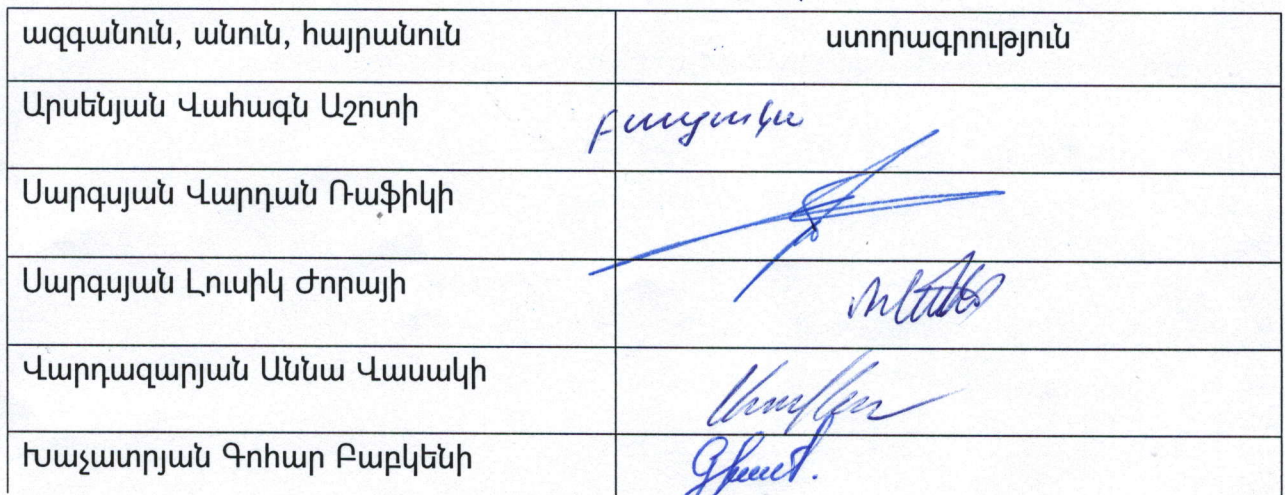 ազգանուն, անուն, հայրանուն ստորագրություն
Արսենյան Վահագն Աշոտի բացակա
Սարգսյան Վարդան Ռաֆիկի
Սարգսյան Լուսիկ Ժորայի
Վարդազարյան Աննա Վասակի
Խաչատրյան Գոհար Բաբկենի